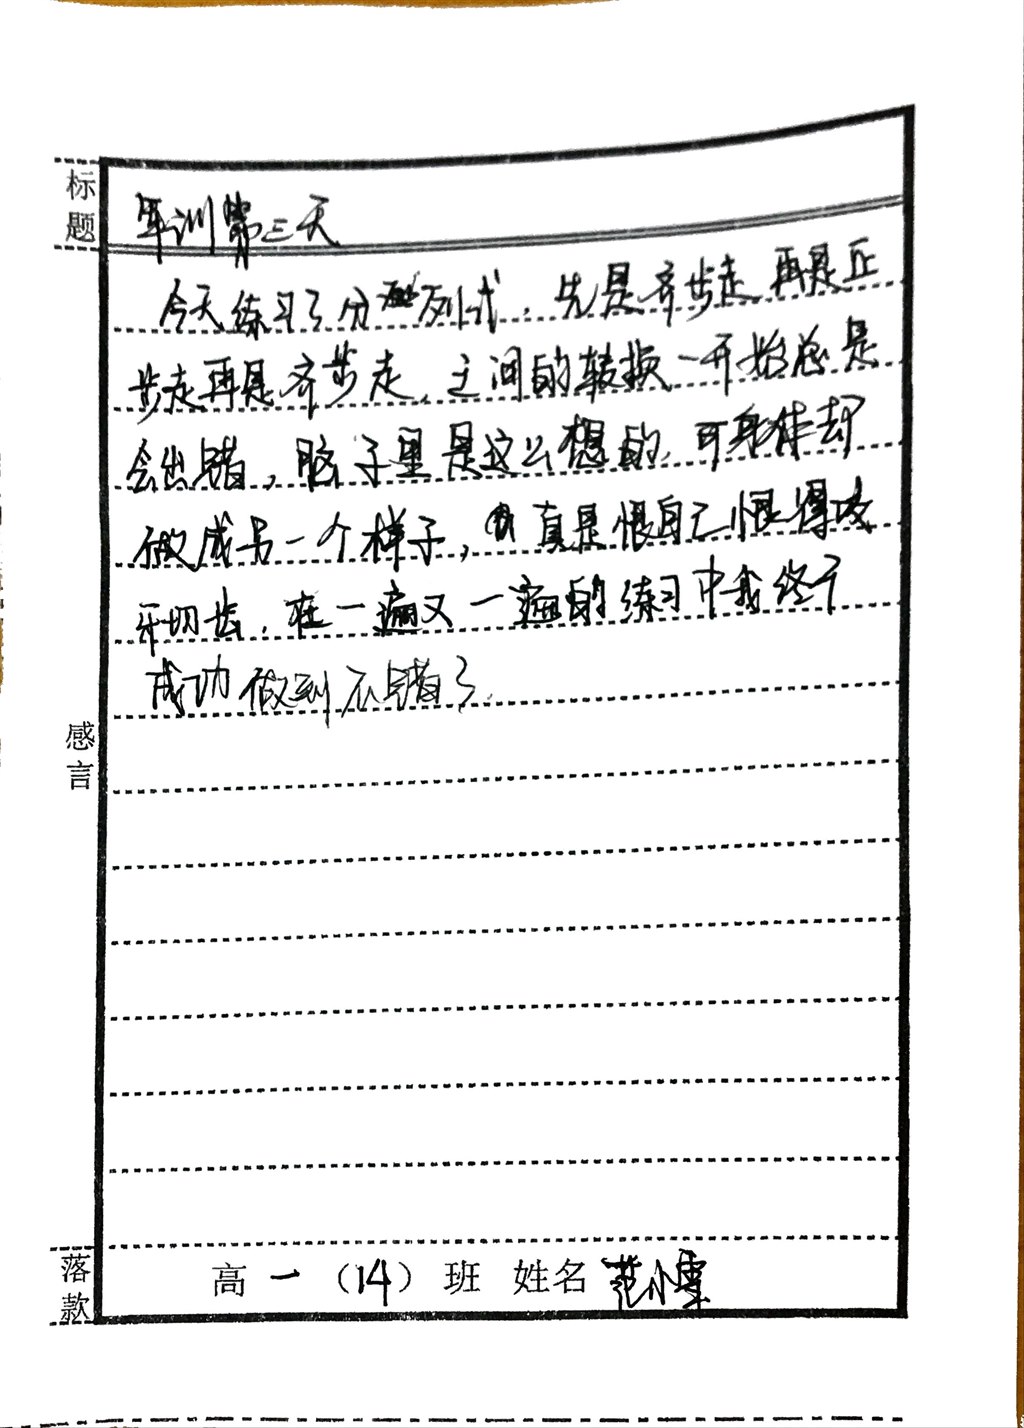 标题
军训第三天
今天练习了分列式，先是齐步走 再是正
步走再是齐步走，之间的转换一开始总是
会出错，脑子里是这么想的，可身体却
做成另一个样子，真是恨自己恨得咬
牙切齿，在一遍又一遍的练习中我终于
成功做到不错了。
感言
落款
高一（14）班 姓名 范小